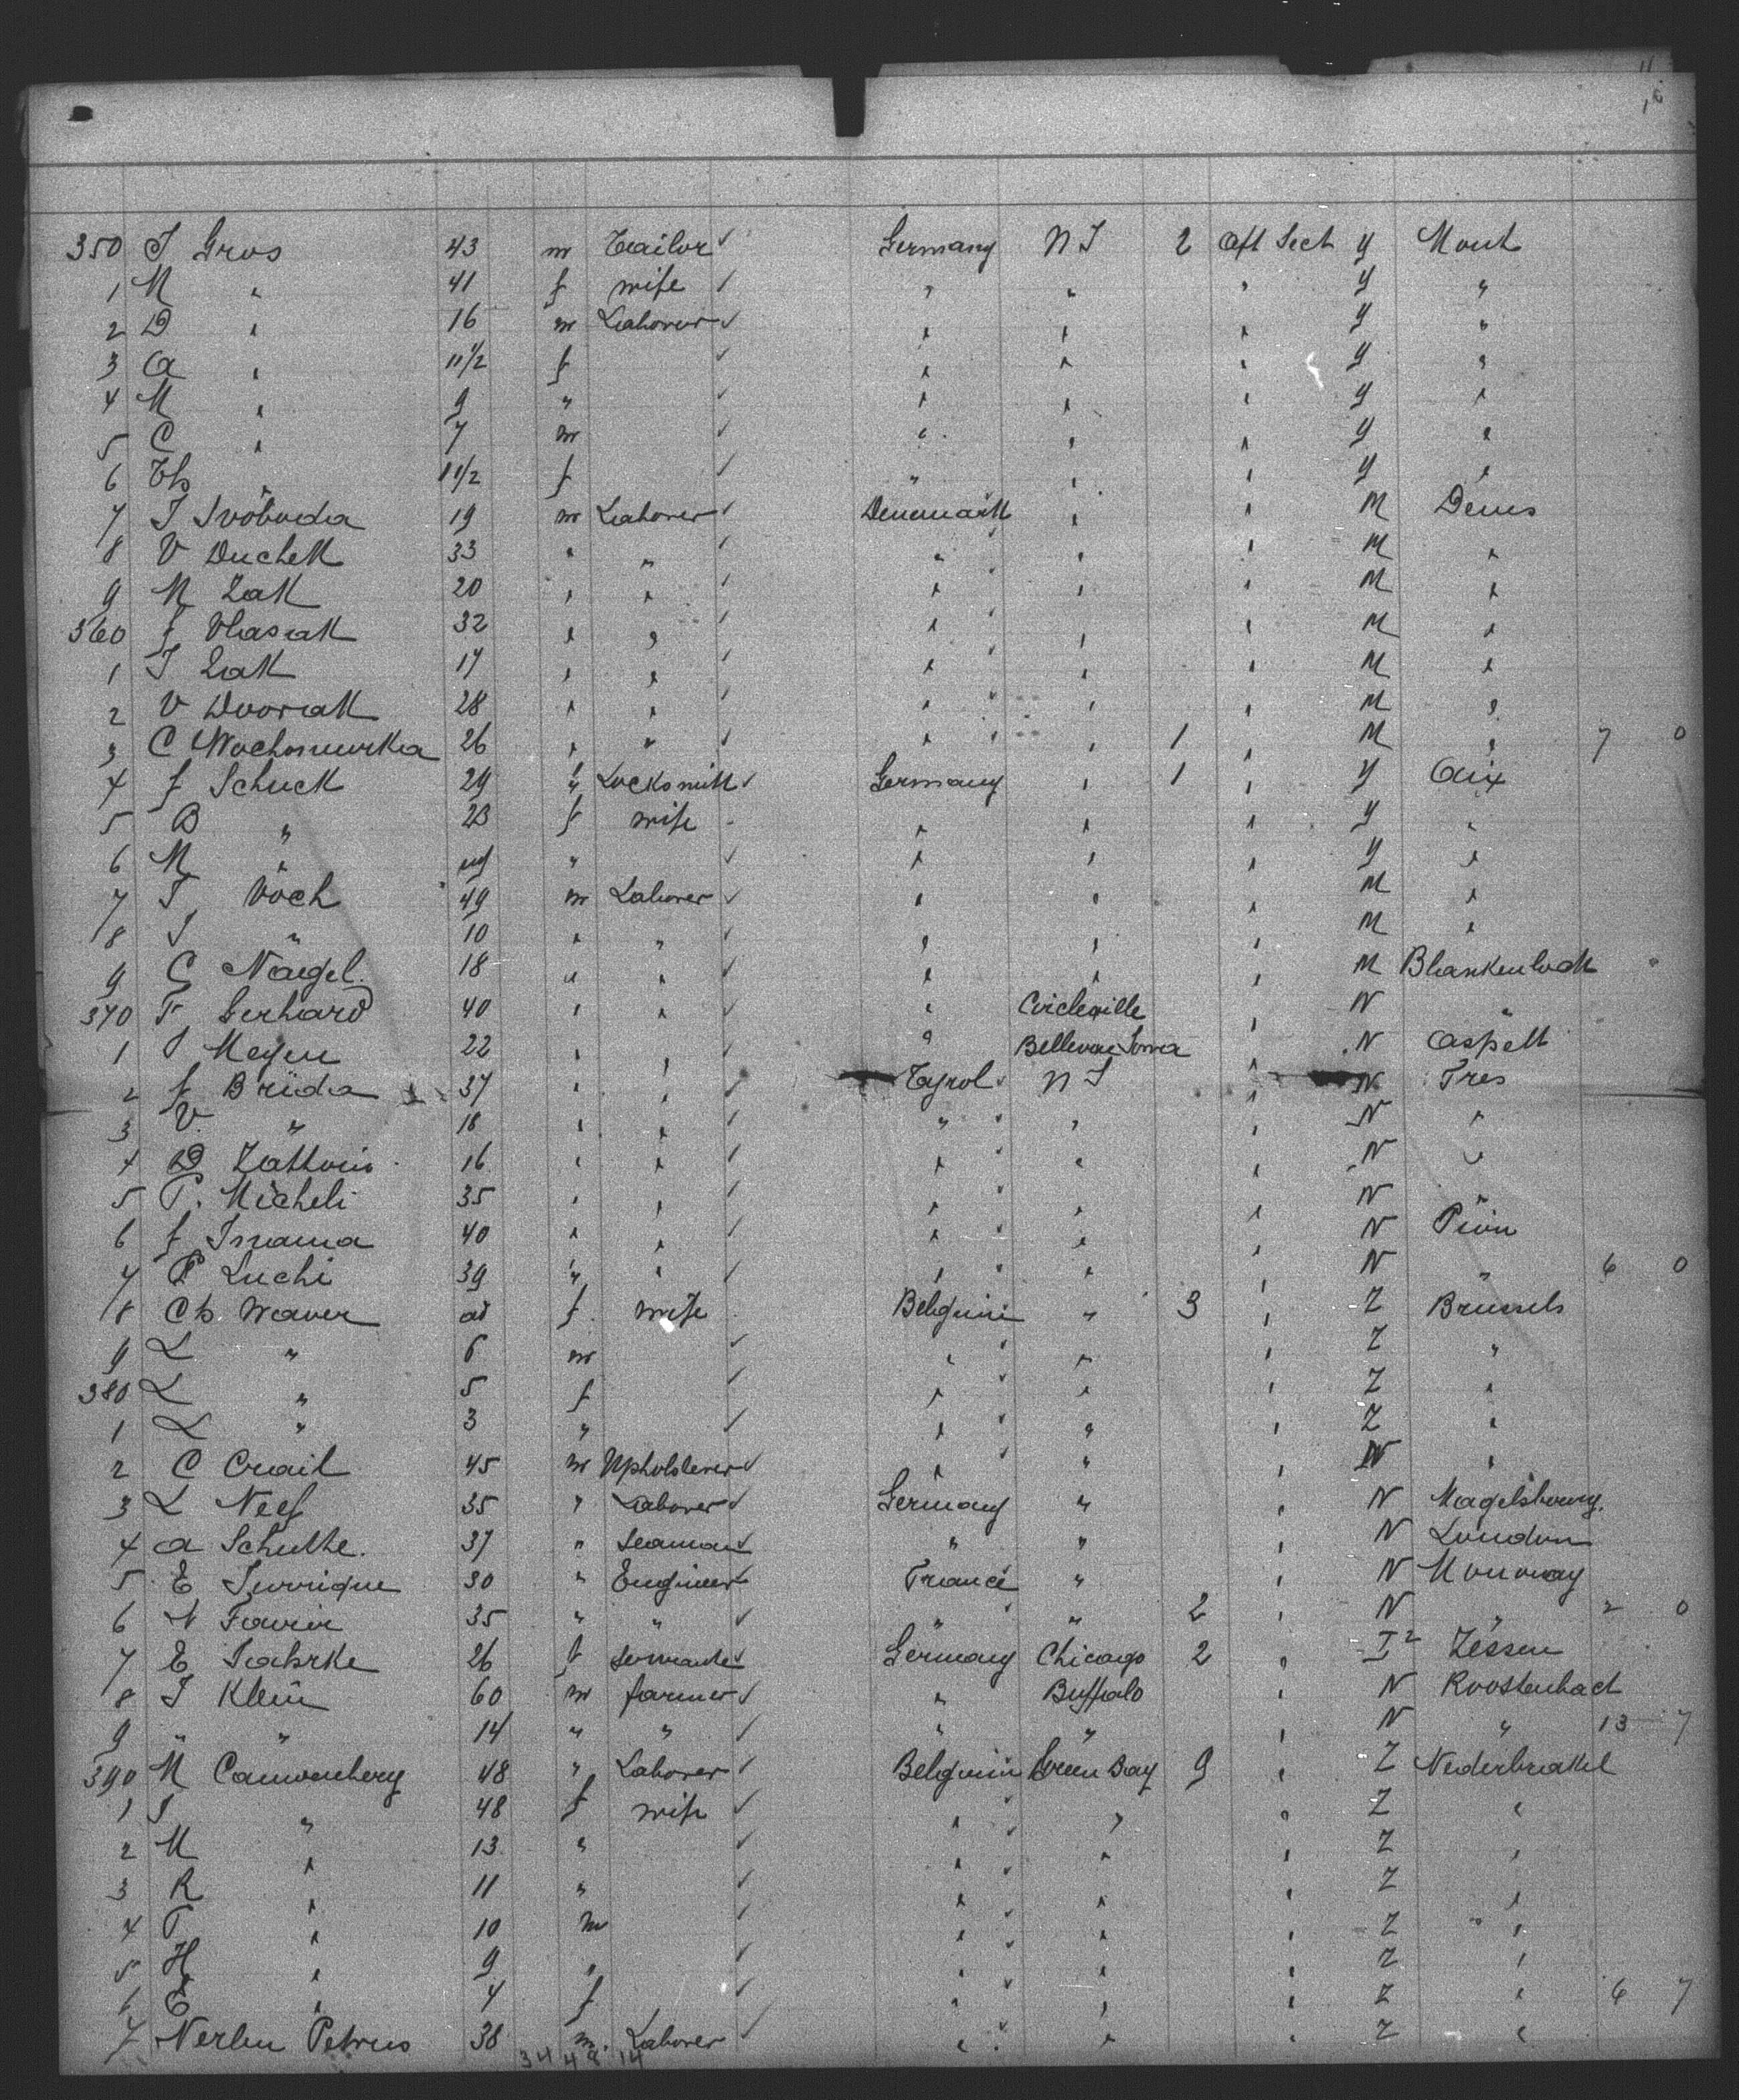 350 J Gros 43 m Tailor ✓ Germany N J 2 Aft Sect y Mont
1 M " 41 f wife ✓ " " " y "
2 D " 16 m Laborer ✓ " " " y "
3 A " 11 1/2 f ✓ " " " y "
4 M " 9 " ✓ " " " y "
5 C " 7 m ✓ " " " y "
6 Th " 1 1/2 f ✓ " " " y "
7 J Svoboda 19 m Laborer ✓ Denemark " " M Denis
8 V Duchek 33 " " ✓ " " " M "
9 M Zak 20 " " ✓ " " " M "
360 f Vlasak 32 " " ✓ " " " M "
1 J Zak 17 " " ✓ " " " M "
2 V Dvorak 28 " " ✓ " " " M "
3 C Wochomurka 26 " " ✓ " " 1 " M " 7 0
4 f Schuck 29 " Locksmith ✓ Germany " 1 " y Aix
5 B " 23 f wife " " " y "
6 M " " ✓ " " " y "
7 J Voch 49 m Laborer ✓ " " " M "
8 J " 10 " " ✓ " " " M "
9 C Naegel 18 " " ✓ " " " M Blankenloch
370 F Gerhard 40 " " ✓ " Circleville " N "
1 P Meyen 22 " " ✓ " Bellevue Iowa " N Aspelt
2 f Brida 37 " " ✓ Tyrol N J " N Tres
3 V " 18 " " ✓ " " " N "
4 D Zattoni 16 " " ✓ " " " N "
5 P. Micheli 35 " " ✓ " " " N "
6 f Inama 40 " " ✓ " " " N
7 P Luchi 39 " " ✓ " " " N " 6 0
8 Ch. Waver ad f wife Belgium " 3 " Z Brussels
9 L " 6 m ✓ " " " Z "
380 L " 5 f ✓ " " " Z "
1 L " 3 " ✓ " " " Z "
2 C Crail 45 m Upholsterer ✓ " " " N "
3 L Neef 35 " Laborer ✓ Germany " " N Magelsbourg.
4 A Schulthe. 37 " Seaman " " " N London
5 E 30 " Engineer France " " N
6 N Favier 35 " " ✓ " " 2 " N " 2 0
7 E Jahrke 26 f Servante ✓ Germany Chicago 2 " Zessen
8 J Klein 60 m farmer ✓ " Buffalo " N Roostenbach
9 " " 14 " " ✓ " " " N " 13 7
390 M Cauwenberg 48 " Laborer ✓ Belgium Green Bay 9 " Z Nederbrakel
1 J " 48 f wife ✓ " " " Z "
2 M " 13 " ✓ " " " Z "
3 R " 11 " ✓ " " " Z "
4 P " 10 m ✓ " " " Z "
5 H " 9 " ✓ " " " Z "
6 E " 4 f ✓ " " " Z " 6 7
7 Nerlen Petrus 38 m. Laborer ✓ " " " Z "
34 48 14